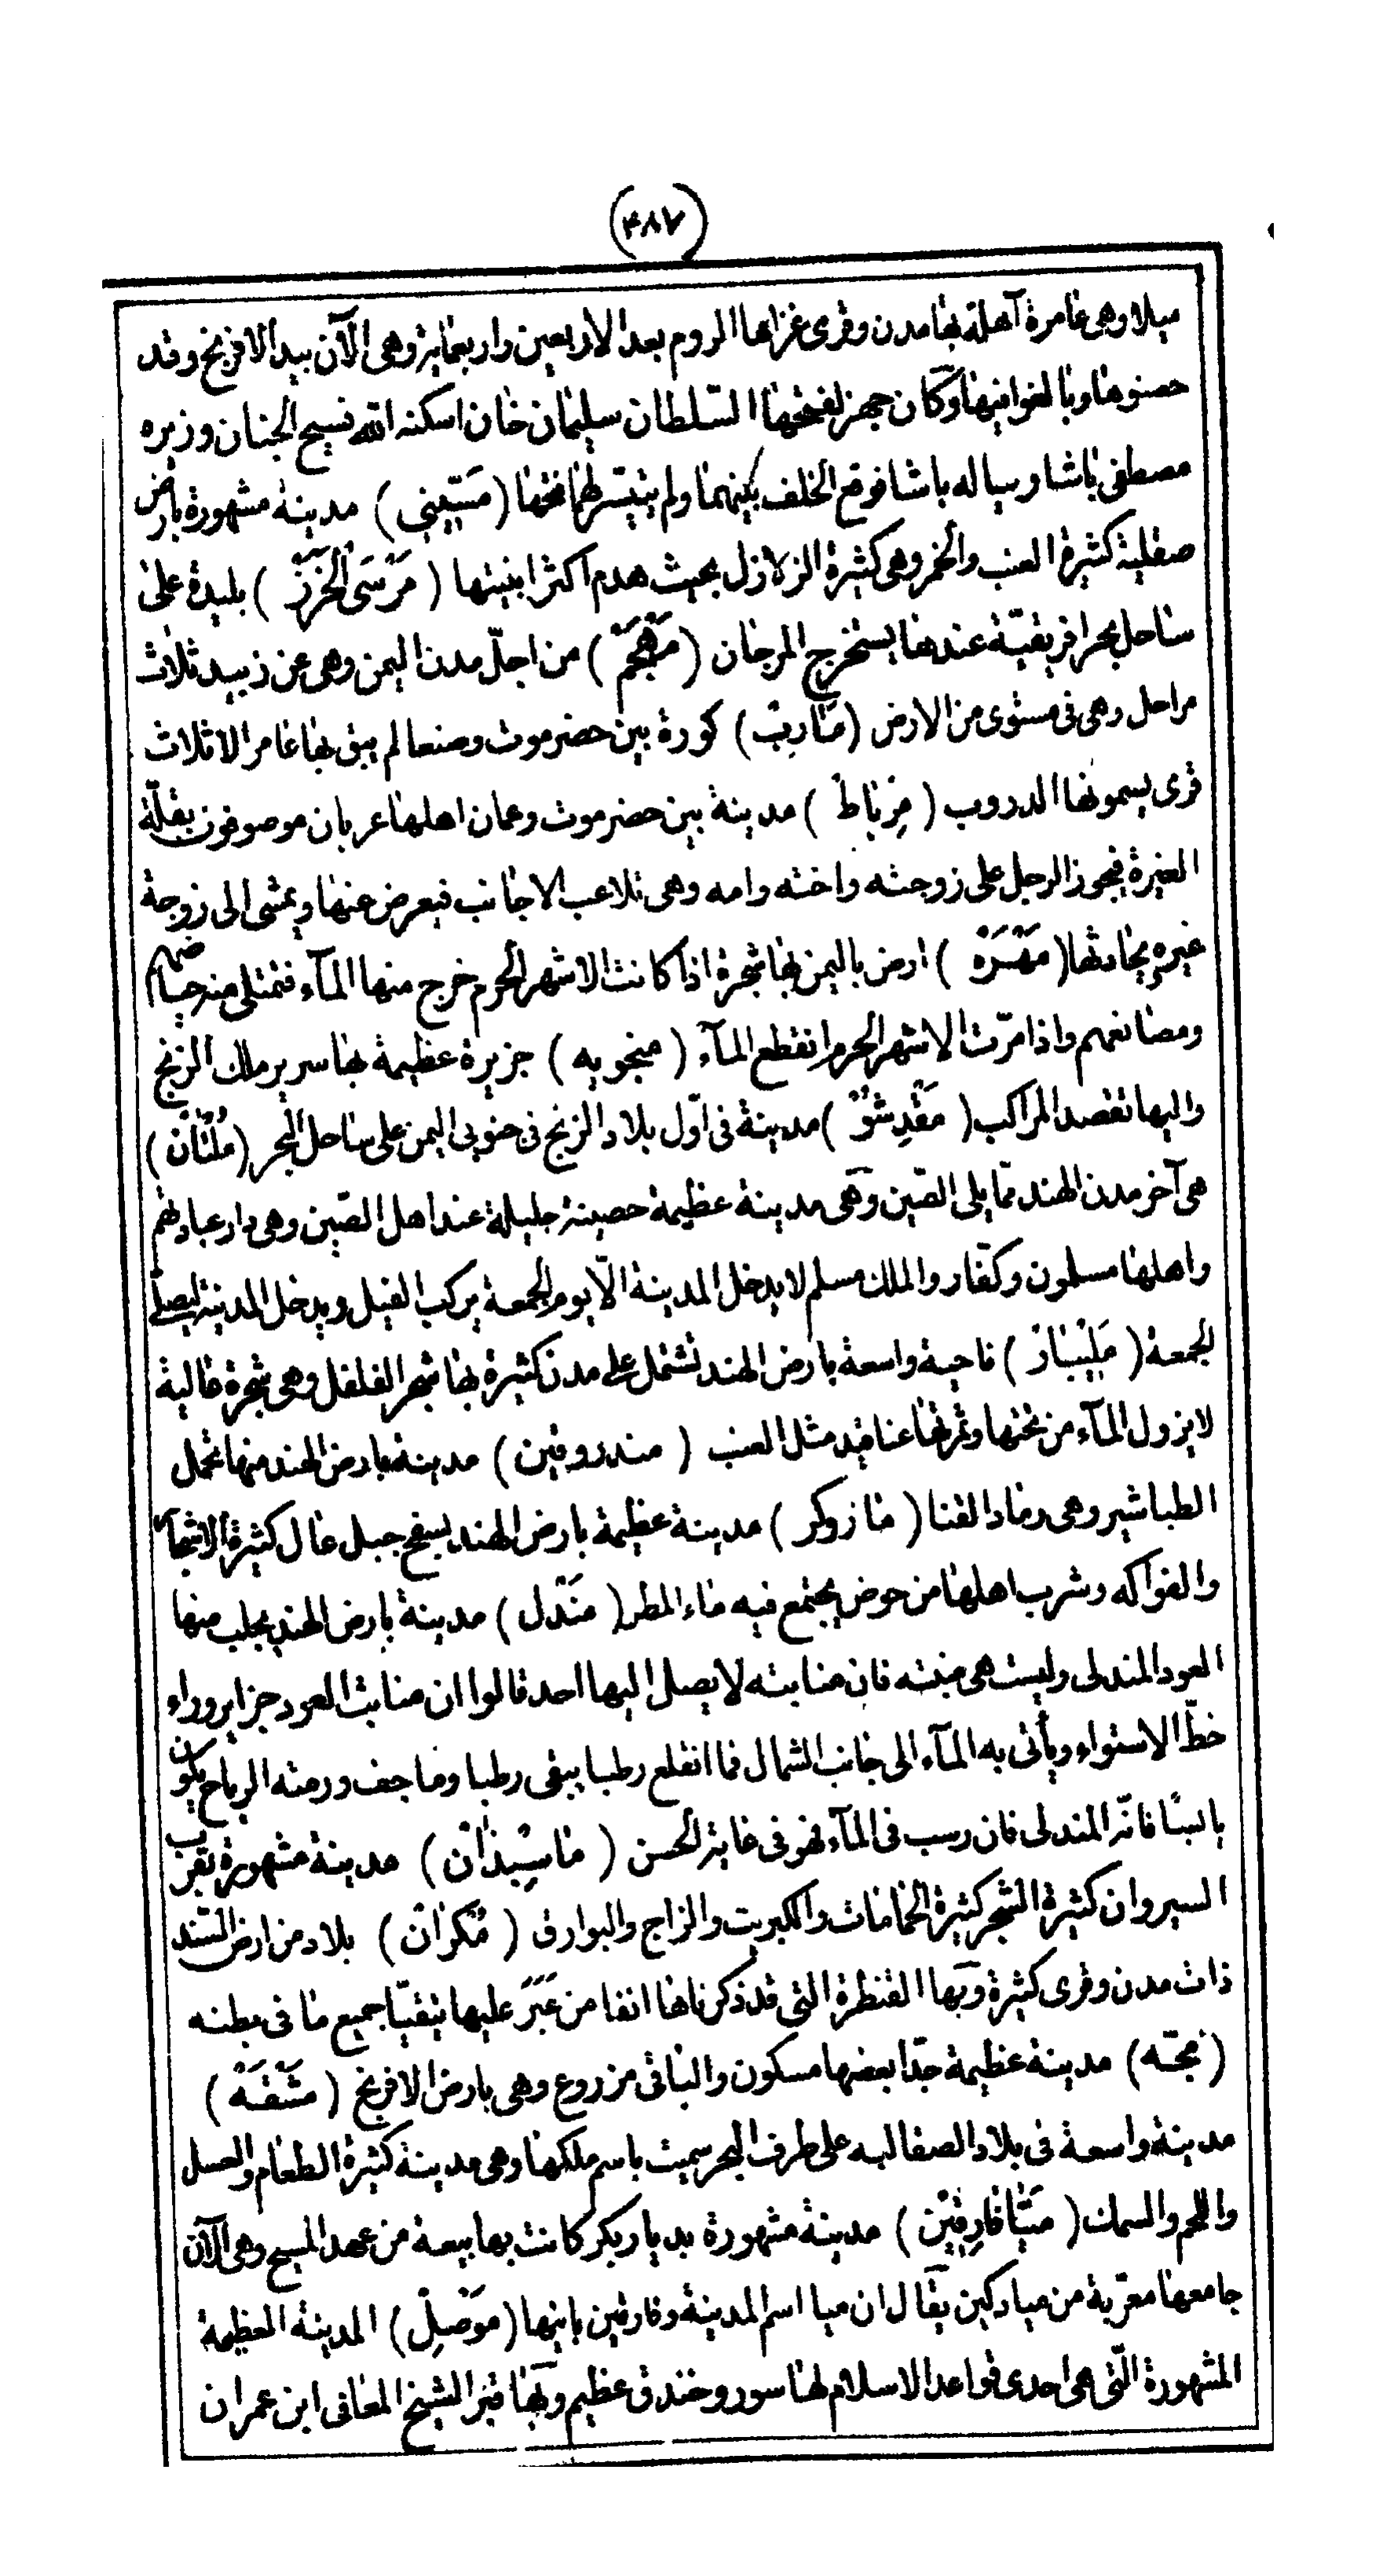 (۴۸۷)
ميلا وهى عامرة آهلة بها مدن وقرى غزاها الروم بعد الاربعين واربعماية وهى الآن بيد الافرنج وقد
حصنوها وبالغوا فيها وكان جهز لفتحها السّلطان سليمان خان اسكنه الله فسيح الجنان وزيره
مصطفى باشا وبياله باشا فوقع الخلف بينهما ولم يتيسّر لهما فتحها (مَسّينى) مدينة مشهورة بارض
صقلية كثيرة العنب والخمر وهى كثيرة الزلازل بحيث هدم اكثر ابنيتها (مَرْسَى الْخَرَزْ) بليدة على
ساحل بحر افريقيّة عندها يستخرج المرجان (مَهْجَمْ) من اجلّ مدن اليمن وهى عن زبيد ثلاث
مراحل وهى فى مستوى من الارض (مَارِبْ) كورة بين حضرموت وصنعا لم يبق بها عامر الا ثلاث
قرى يسمونها الدروب (مِرْبَاطْ) مدينة بين حضرموت وعمان اهلها عربان موصوفون بقلّة
الغيرة فيجوز الرجل على زوجته واخته وامه وهى تلاعب الاجانب فيعرض عنها ويمشى الى زوجة
غيره يحادثها (مَهْرَهْ) ارض باليمن بها شجرة اذا كانت الاشهر الحرم خرج منها المآء فتمتلى منه حياضهم
ومصانعهم واذا مرّت الاشهر الحرم انقطع المآء (منجويه) جزيرة عظيمة بها سرير ملك الزنج
واليها تقصد المراكب (مَقْدِشُوْ) مدينة فى اوّل بلاد الزنج فى جنوبى اليمن على ساحل البحر (مُلْتَانْ)
هى آخر مدن الهند ممّا يلى الصّين وهى مدينة عظيمة حصينة جليلة عند اهل الصّين وهى دار عبادتهم
واهلها مسلمون وكفّار والملك مسلم لا يدخل المدينة الّا يوم الجمعة يركب الفيل ويدخل المدينة ليصلّى
الجمعة (مَلِيْبَارْ) ناحية واسعة بارض الهند تشتمل على مدن كثيرة بها شجر الفلفل وهى شجرة عالية
لا يزول المآء من تحتها وثمرتها عناقيد مثل العنب (مندروقين) مدينة بارض الهند منها تحمل
الطباشير وهى رماد القنا (مازوكر) مدينة عظيمة بارض الهند بسفح جبل عال كثيرة الاشجار
والفواكه وشرب اهلها من حوض يجتمع فيه ماء المطر (مَنْدَل) مدينة بارض الهند يجلب منها
العود المندلى وليست هى منبته فان منابته لا يصل اليها احد قالوا ان منابت العود جزاير وراء
خطّ الاستواء ويأتى به المآء الى جانب الشمال فما انقلع رطبا يبقى رطبا وما جف ورمته الرياح يكون
يابسًا فانّه المندلى فان رسب فى المآء فهو فى غاية الحسن (مَاسِبَذَانْ) مدينة مشهورة بقرب
السيروان كثيرة الشجر كثيرة الحمامات والكبريت والزاج والبوارق (مُكْرَانْ) بلاد من ارض السّند
ذات مدن وقرى كثيرة وبها القنطرة التى قد ذكرناها انفا من عَبَرَ عليها يتقيّا جميع ما فى بطنه
(مجّه) مدينة عظيمة جدّا بعضها مسكون والباقى مزروع وهى بارض الافرنج (مَشْقَهْ)
مدينة واسعة فى بلاد الصقالبه على طرف البحر سميت باسم ملكها وهى مدينة كثيرة الطعام والعسل
واللحم والسمك (مَيَّافَارِقِيْنْ) مدينة مشهورة بديار بكر كانت بها بيعة من عهد المسيح وهى الآن
جامعها معرّبة من مباركين يقال ان ميا اسم المدينة وفارقين بانيها (مَوْصِلْ) المدينة العظيمة
المشهورة الّتى هى احدى قواعد الاسلام لها سور وخندق عظيم وبها قبر الشيخ المعافى ابن عمران